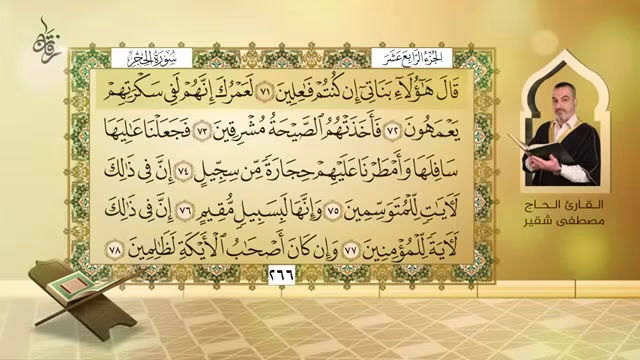 سُورَةُ الحِجْرِ
الجُزْءُ الرَّابِعَ عَشَرَ
قَالَ هَٰٓؤُلَآءِ بَنَاتِىٓ إِن كُنتُمْ فَٰعِلِينَ ٧١ لَعَمْرُكَ إِنَّهُمْ لَفِى سَكْرَتِهِمْ
يَعْمَهُونَ ٧٢ فَأَخَذَتْهُمُ ٱلصَّيْحَةُ مُشْرِقِينَ ٧٣ فَجَعَلْنَا عَٰلِيَهَا
سَافِلَهَا وَأَمْطَرْنَا عَلَيْهِمْ حِجَارَةً مِّن سِجِّيلٍ ٧٤ إِنَّ فِى ذَٰلِكَ
لَءَايَٰتٍ لِّلْمُتَوَسِّمِينَ ٧٥ وَإِنَّهَا لَبِسَبِيلٍ مُّقِيمٍ ٧٦ إِنَّ فِى ذَٰلِكَ
لَءَايَةً لِّلْمُؤْمِنِينَ ٧٧ وَإِن كَانَ أَصْحَٰبُ ٱلْأَيْكَةِ لَظَٰلِمِينَ ٧٨
٢٦٦
القارئ الحاج
مصطفى شقير